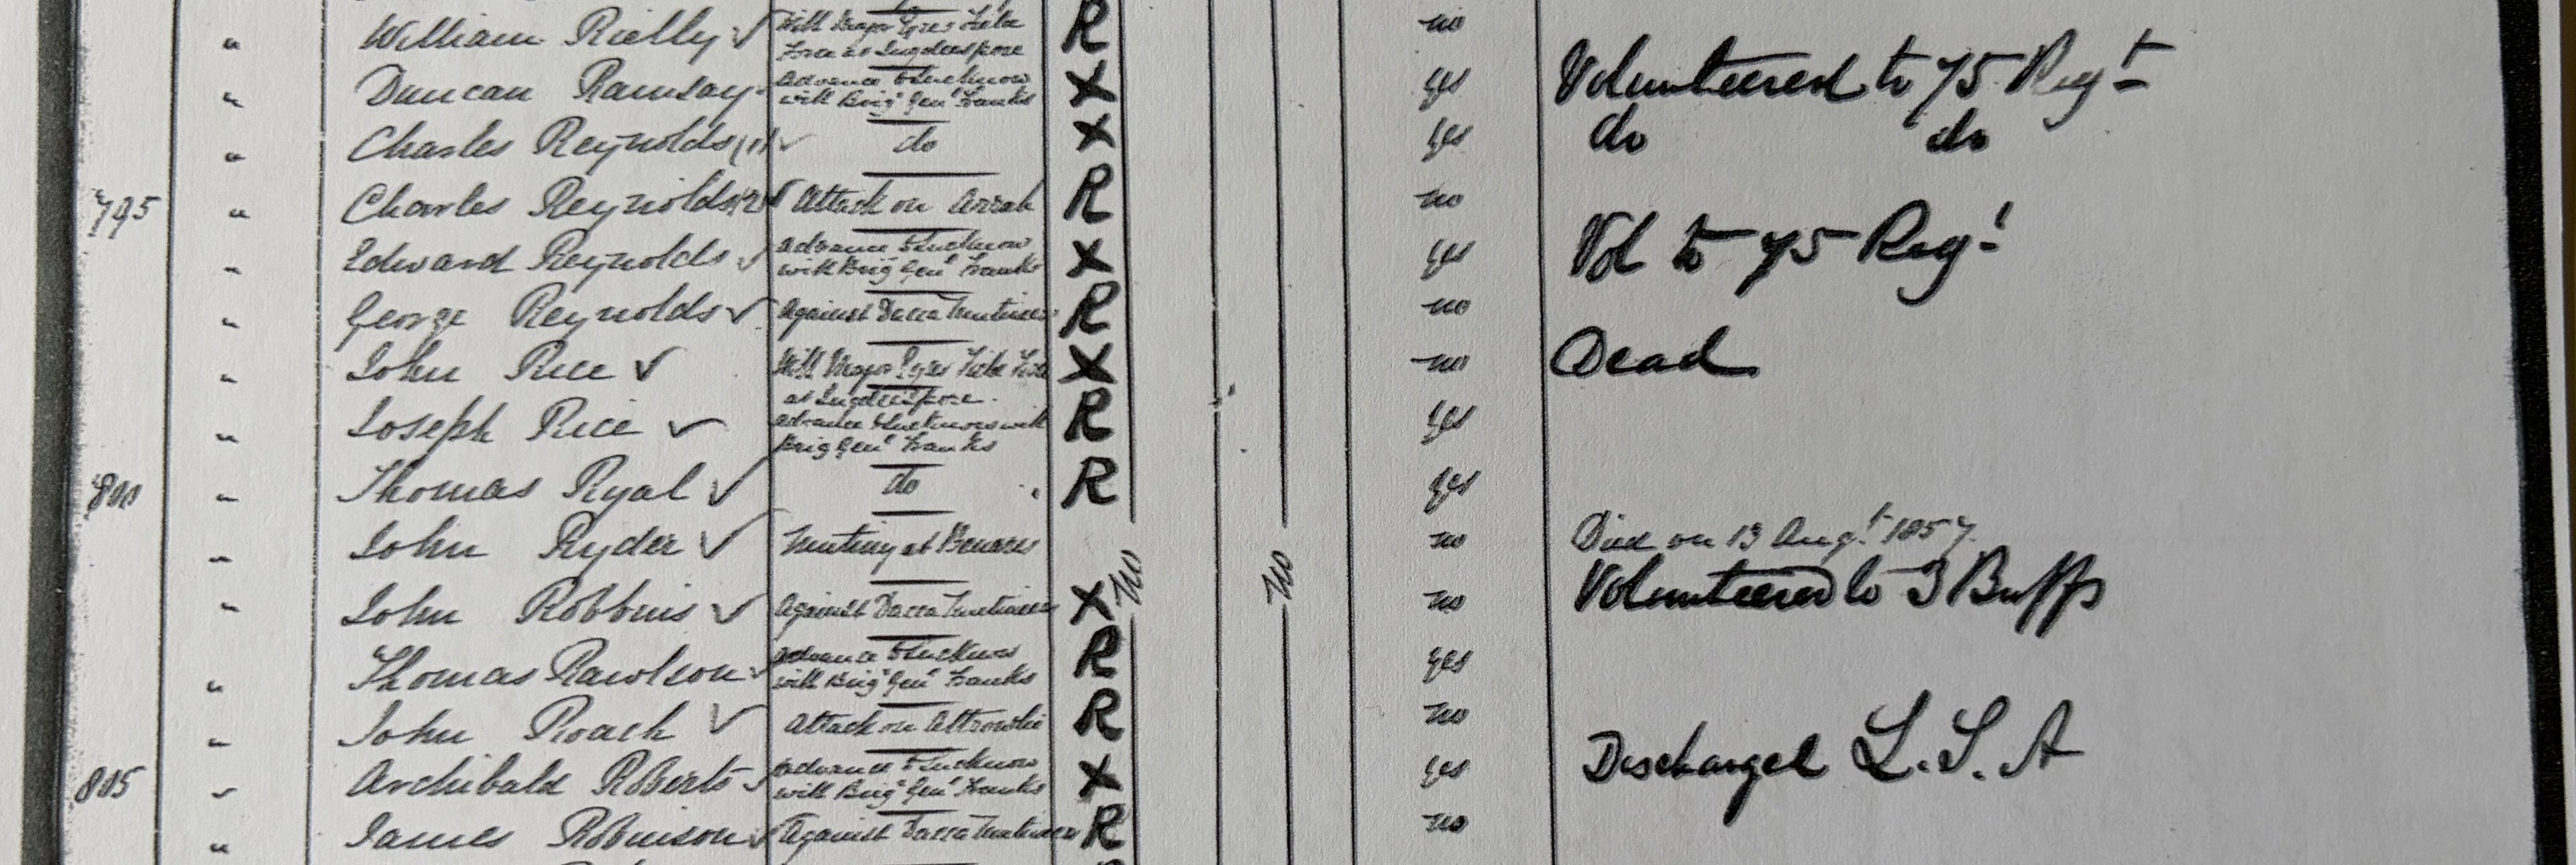 " William Rielly ✓ With Major Eyres Field R no
Force at Jugdeespore
" Duncan Ramsay Advance to Lucknow X yes Volunteered to 75 Regt
with Brigr Genl Franks
" Charles Reynolds (1) ✓ do X yes do do
795 " Charles Reynolds (2) ✓ Attack on Arrah R no
" Edward Reynolds ✓ Advance to Lucknow X yes Vol to 75 Regt
with Brigr Genl Franks
" George Reynolds ✓ Against Dacca Mutineers R no
" John Rice ✓ With Major Eyres Field Force X no Dead
at Jugdeespore
" Joseph Rice ✓ Advance to Lucknow with R yes
Brig Genl Franks
800 " Thomas Ryal ✓ do R yes
" John Ryder ✓ Mutiny at Benares no Died on 13 Augt 1857
" John Robbins ✓ Against Dacca Mutineers X no no no Volunteered to 3 Buffs
" Thomas Rawlson ✓ Advance to Lucknow R yes
with Brigr Genl Franks
" John Roach ✓ Attack on R no
805 " Archibald Roberts ✓ Advance to Lucknow X yes Dischargel L.S.A
with Brigr Genl Franks
" James Robinson ✓ Against Dacca Mutineers R no